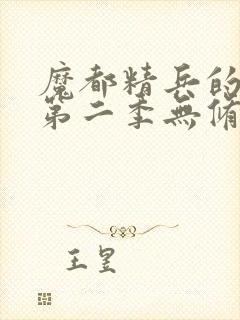 魔都精兵的
第二季無脩
王昱